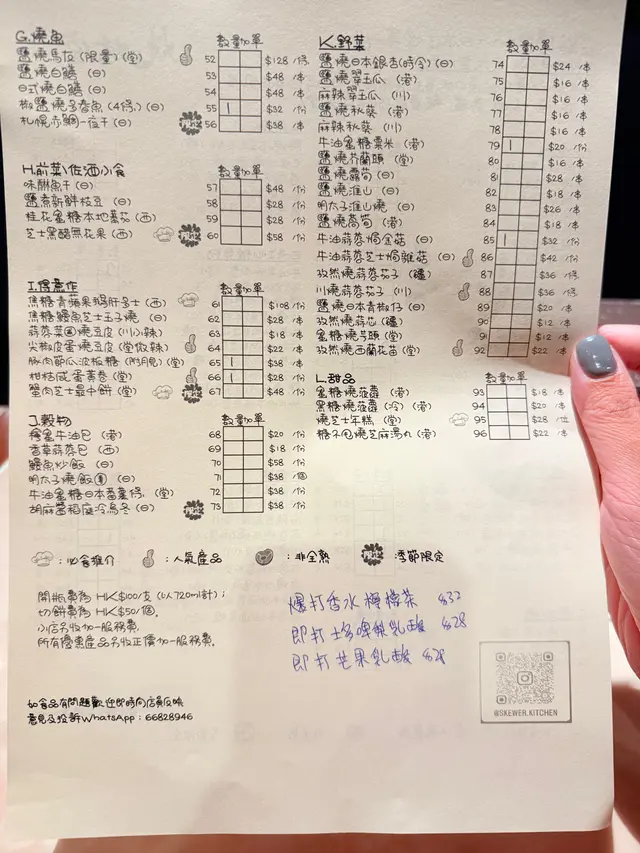 G.燒魚 數量加單
鹽燒馬友(限量)(堂) 52 $128 /條
鹽燒白鱔 (日) 53 $48 /本
日式燒白鱔 (日) 54 $48 /本
椒鹽燒多春魚(4條)(日) 55 | $32 /份
札幌赤鯛一夜干(日) 限定 56 $38 /本
H.前菜\佐酒小食 數量加單
味醂魚干(日) 57 $48 /份
鹽煮新鮮枝豆 (日) 58 $28 /份
桂花蜜糖本地番茄 (西) 59 $28 /份
芝士黑醋無花果 (西) 限定 60 $58 /份
I.得意作 數量加單
焦糖青蘋果鵝肝多士(西) 61 $108 /份
焦糖鰻魚芝士玉子燒 (日) 62 $28 /本
蒜蓉菜燒豆皮(川)(小辣) 63 $18 /本
尖椒皮蛋燒豆皮(堂)(微辣) 64 $22 /本
豚肉節瓜波板糖 (冇月見)(堂) 65 | $38 /本
柑桔咸蛋黃卷 (堂) 66 | $28 /本
蟹肉芝士最中餅 (堂) 限定 67 $48 /份
J.穀物 數量加單
檐蜜牛油包 (港) 68 $20 /份
香草蒜蓉包 (西) 69 $18 /份
鰻魚炒飯 (日) 70 $58 /份
明太子燒飯 (日) 71 $38 /個
牛油蜜糖日本番薯條 (堂) 72 $38 /份
胡麻醬稻庭冷烏冬 (日) 限定 73 $38 /份
K.野菜 數量加單
鹽燒日本銀杏(時令)(日) 74 $24 /本
鹽燒翠玉瓜 (港) 75 $16 /本
麻辣翠玉瓜 (川) 76 $16 /本
鹽燒秋葵 (港) 77 $16 /本
麻辣秋葵 (川) 78 $16 /本
牛油蜜糖粟米 (港) 79 | $20 /份
鹽燒芥蘭頭 (堂) 80 $16 /本
鹽燒露筍(日) 81 $28 /本
鹽燒淮山 (日) 82 $18 /本
明太子淮山燒 (日) 83 $26 /本
鹽燒萵筍 (港) 84 $18 /本
牛油蒜蓉焗金菇 (日) 85 | $32 /份
牛油蒜蓉芝士焗雜菇 (日) 86 $42 /份
孜然燒蒜蓉茄子 (疆) 87 $36 /條
川燒蒜蓉茄子 (川) 88 $36 /條
鹽燒日本青椒仔 (日) 89 $30 /本
孜然燒蒜芯 (疆) 90 $12 /本
蜜糖燒芋頭 (堂) 91 $12 /本
孜然燒西蘭花苗 (堂) 92 $22 /本
L.甜品 數量加單
蜜糖燒菠蘿 (港) 93 $18 /本
黑糖燒菠蘿 (冷) (港) 94 $20 /本
燒芝士年糕 (堂) 95 $28 /位
糖不甩燒芝麻湯丸 (港) 96 $22 /本
:必食推介 :人氣產品 :非全熟 限定 :季節限定
開瓶費為 HK$100/支 (以720ml計);
切餅費為 HK$50/個.
小店另收加一服務費.
所有優惠產品另收正價加一服務費.
爆打香水檸檬茶 $32
即打士多啤梨乳酸 $28
即打芒果乳酸 $28
@SKEWER.KITCHEN
如食品有問題歡迎即時向店員反映
意見及投訴WhatsApp : 66828946